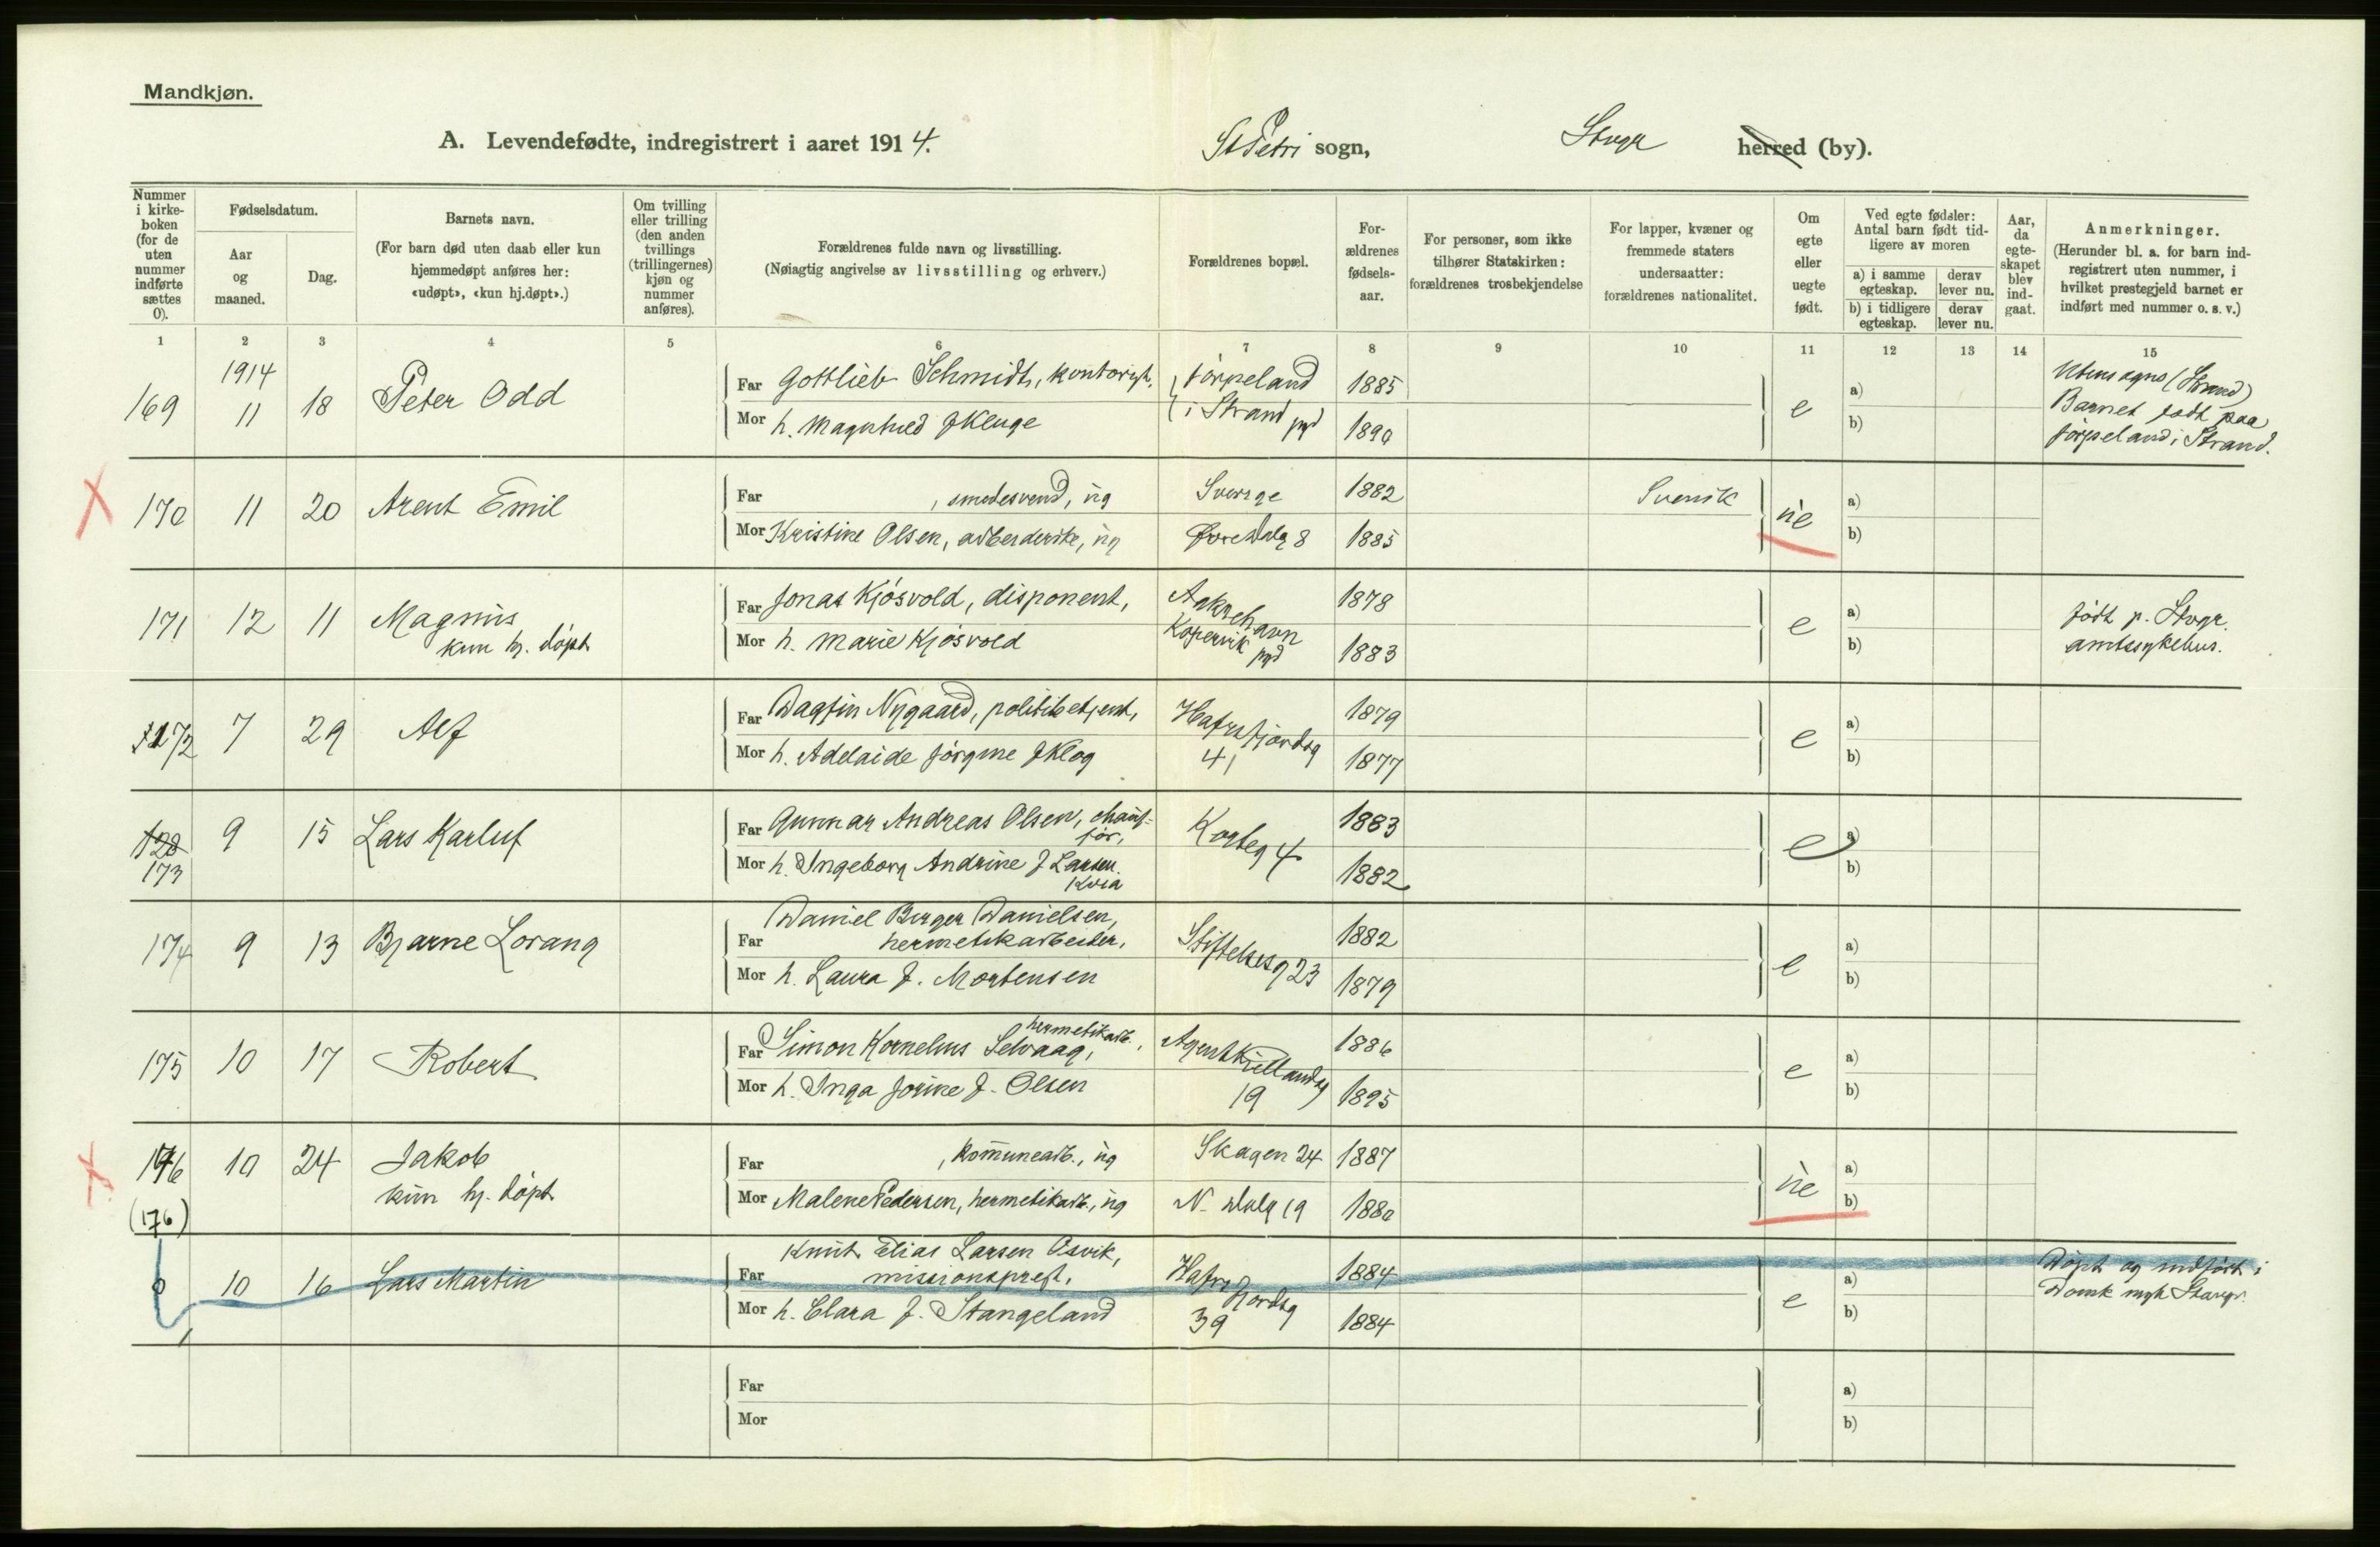 Mandkjøn.
A. Levendefødte, indregistrert i aaret 1914.
St Petri sogn, Stvgr herred (by).
Nummer i kirke-boken (for de uten nummer indførte sættes 0).
Fødselsdatum.
Aar og maaned.
Dag.
Barnets navn.
(For barn død uten daab eller kun hjemmedøpt anføres her: «udøpt», «kun hj.døpt».)
Om tvilling eller trilling (den anden tvillings (trillingernes) kjøn og nummer anføres).
Forældrenes fulde navn og livsstilling.
(Nøiagtig angivelse av livsstilling og erhverv.)
Forældrenes bopæl.
For-ældrenes fødsels-aar.
For personer, som ikke tilhører Statskirken: forældrenes trosbekjendelse
For lapper, kvæner og fremmede staters undersaatter: forældrenes nationalitet.
Om egte eller uegte født.
Ved egte fødsler: Antal barn født tid-ligere av moren
a) i samme egteskap.
derav lever nu.
b) i tidligere egteskap.
derav lever nu.
Aar, da egte-skapet blev ind-gaat.
Anmerkninger.
(Herunder bl. a. for barn ind-registrert uten nummer, i hvilket prestegjeld barnet er indført med nummer o. s. v.)
1 2 3 4 5 6 7 8 9 10 11 12 13 14 15
1914
169 11 18 Peter Odd
Far Gottlieb Schmidt, kontorist, Jørpeland 1885
Mor h. Magnhild f Kluge i Strand pgd 1890
e a) b)
Utensogns (Strand)
Barnet født paa
Jørpeland i Strand.
170 11 20 Arent Emil
Far , smedesvend, ug Sverige 1882 Svensk
Mor Kristine Olsen, arbeiderske, ug Øvre Dalg 8 1885
ue a) b)
171 12 11 Magnus
kun hj. døpt
Far Jonas Kjøsvold, disponent, Aakrehavn 1878
Mor h. Marie Kjøsvold Kopervik pgd 1883
e a) b)
født p. Stvgr.
amtssykehus.
172 7 29 Alf
Far Dagfin Nygaard, politibetjent, Hafrsfjordsg 1879
Mor h. Adelaide Jørgine f Klog 41 1877
e a) b)
128
173 9 15 Lars Karluf
Far Gunnar Andreas Olsen, chauf-
før, Korteg 4 1883
Mor h. Ingeborg Andrine f Larsen 1882
Kvia
e a) b)
174 9 13 Bjarne Lorang
Far Daniel Berger Danielsen,
hermetikarbeider, Stiftelsesg 23 1882
Mor h. Laura f. Mortensen 1879
e a) b)
175 10 17 Robert
Far Simon Kornelius Selvaag, hermetikarb., Agent Kiellandsg 1886
Mor h. Inga Jorine f. Olsen 19 1895
e a) b)
176 10 24 Jakob
kun hj. døpt
Far , kommunearb., ug Skagen 24 1887
Mor Malene Pedersen, hermetikarb., ug N. Dalg 19 1880
ue a) b)
(176)
0 10 16 Lars Martin
Far Knut Elias Larsen Osvik,
missionsprest, Hafrsfjordsg 1884
Mor h. Clara f. Stangeland 39 1884
e a) b)
Døpt og indført i
Domk mgh Stavgr.
Far
Mor
a) b)